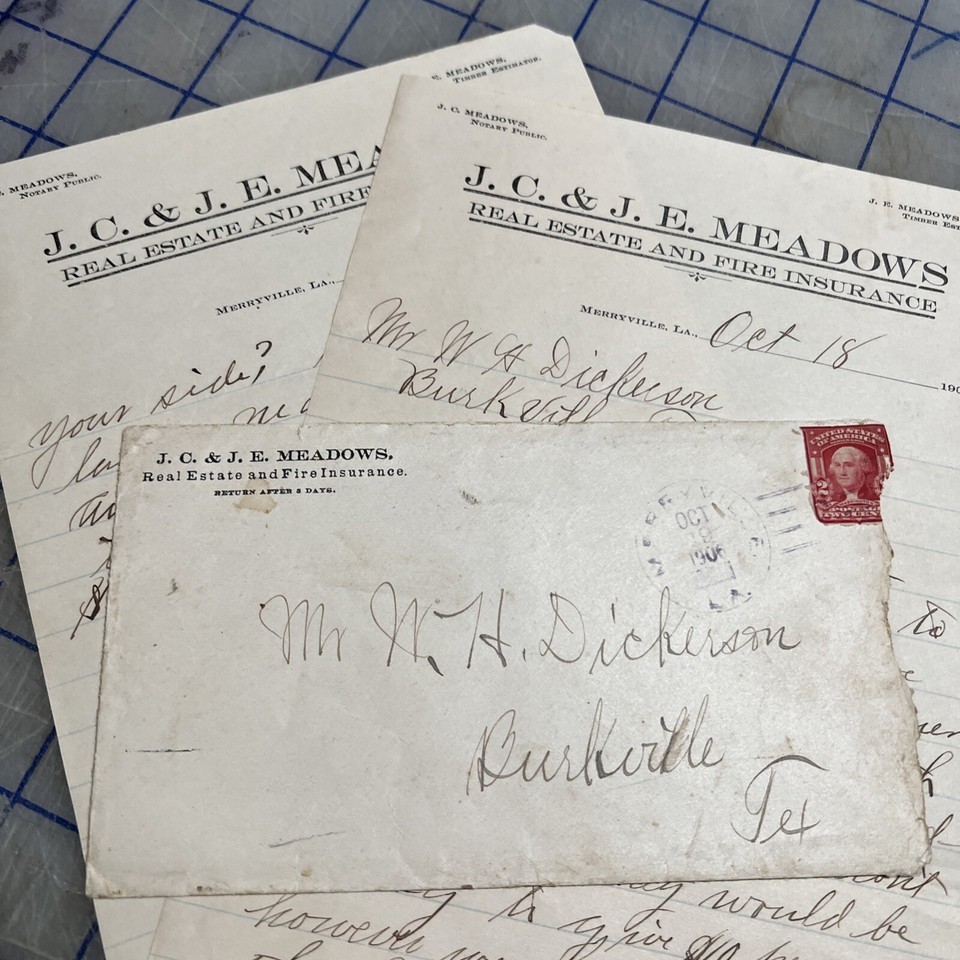 E. MEADOWS,
TIMBER ESTIMATOR.
MEADOWS,
NOTARY PUBLIC.
J. C. & J. E. MEA
REAL ESTATE AND FIRE
MERRYVILLE, LA.,
your side?
J. C. MEADOWS,
NOTARY PUBLIC.
J. E. MEADOWS
TIMBER EST
J. C. & J. E. MEADOWS
REAL ESTATE AND FIRE INSURANCE
MERRYVILLE, LA., Oct 18 190
Mr W H Dickerson
Burkvill
J. C. & J. E. MEADOWS,
Real Estate and Fire Insurance.
RETURN AFTER 5 DAYS.
UNITED STATES
OF AMERICA
2
POSTAGE
TWO CEN
MERRYV
OCT
18
1906
LA
Mr W. H. Dickerson
Burkville
Tex
to
would be
however
to give $10